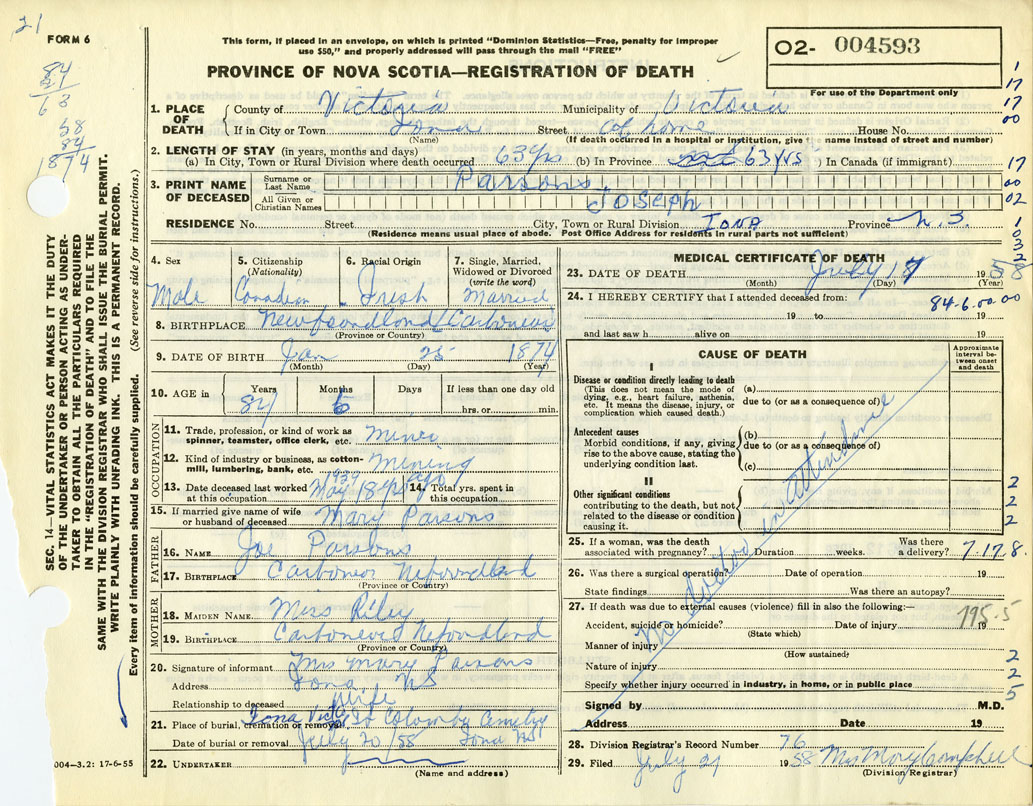 21
FORM 6
84
21
63
58
84
1874
This form, if placed in an envelope, on which is printed "Dominion Statistics—Free, penalty for improper
use $50," and properly addressed will pass through the mail "FREE"
PROVINCE OF NOVA SCOTIA—REGISTRATION OF DEATH
O2- 004593
For use of the Department only
1. PLACE OF DEATH { County of Victoria Municipality of Victoria
If in City or Town Iona Street at home House No.
(Name) (If death occurred in a hospital or institution, give its name instead of street and number)
2. LENGTH OF STAY (in years, months and days)
(a) In City, Town or Rural Division where death occurred 63 yrs (b) In Province 63 yrs ) In Canada (if immigrant)
3. PRINT NAME OF DECEASED
Surname or Last Name Parsons
All Given or Christian Names Joseph
RESIDENCE No. Street City, Town or Rural Division Iona Province N.S
(Residence means usual place of abode. Post Office Address for residents in rural parts not sufficient)
4. Sex Male
5. Citizenship (Nationality) Canadian
6. Racial Origin Irish
7. Single, Married, Widowed or Divorced (write the word) Married
8. BIRTHPLACE Newfoundland Carbonear
(Province or Country)
9. DATE OF BIRTH Jan 25 1874
(Month) (Day) (Year)
10. AGE in { Years 84 Months 6 Days If less than one day old
hrs. or min.
OCCUPATION
11. Trade, profession, or kind of work as spinner, teamster, office clerk, etc. Miner
12. Kind of industry or business, as cotton-mill, lumbering, bank, etc. Mining
13. Date deceased last worked at this occupation May 1939 18 yrs ago 14. Total yrs. spent in this occupation
15. If married give name of wife or husband of deceased Mary Parsons
FATHER
16. NAME Joe Parsons
17. BIRTHPLACE Carbonear Nefoundland
(Province or Country)
MOTHER
18. MAIDEN NAME Miss Riley
19. BIRTHPLACE Carbonear Nefoundland
(Province or Country)
20. Signature of informant Mrs Mary Parsons
Address Iona NS
Relationship to deceased Wife
21. Place of burial, cremation or removal Iona St Columba Cemetery
Date of burial or removal July 20/55 Iona NS
22. UNDERTAKER
(Name and address)
MEDICAL CERTIFICATE OF DEATH
23. DATE OF DEATH July 17 1958
(Month) (Day) (Year)
24. I HEREBY CERTIFY that I attended deceased from: 84-6.00.00
19 to 19
and last saw h alive on 19
CAUSE OF DEATH
Approximate interval between onset and death
I
Disease or condition directly leading to death
(This does not mean the mode of dying, e.g., heart failure, asthenia, etc. It means the disease, injury, or complication which caused death.)
(a)
due to (or as a consequence of)
Antecedent causes
Morbid conditions, if any, giving rise to the above cause, stating the underlying condition last.
(b)
due to (or as a consequence of)
(c)
II
Other significant conditions
contributing to the death, but not related to the disease or condition causing it.
No doctor in attendance
25. If a woman, was the death associated with pregnancy? Duration weeks. Was there a delivery? 7.17.8.
26. Was there a surgical operation? Date of operation 19
State findings Was there an autopsy?
27. If death was due to external causes (violence) fill in also the following:—
Accident, suicide or homicide? Date of injury 19
(State which)
195-5
Manner of injury
(How sustained)
Nature of injury
Specify whether injury occurred in industry, in home, or in public place
Signed by M.D.
Address Date 19
28. Division Registrar's Record Number 76
29. Filed July 21 1958 Mrs Mary Campbell
(Division Registrar)
SEC. 14—VITAL STATISTICS ACT MAKES IT THE DUTY
OF THE UNDERTAKER OR PERSON ACTING AS UNDER-
TAKER TO OBTAIN ALL THE PARTICULARS REQUIRED
IN THE "REGISTRATION OF DEATH" AND TO FILE THE
SAME WITH THE DIVISION REGISTRAR WHO SHALL ISSUE THE BURIAL PERMIT.
WRITE PLAINLY WITH UNFADING INK. THIS IS A PERMANENT RECORD.
Every item of information should be carefully supplied. (See reverse side for instructions.)
004—3.2: 17-6-55
1
17
17
00
17
00
02
1
0
3
2
8
2
2
2
2
5